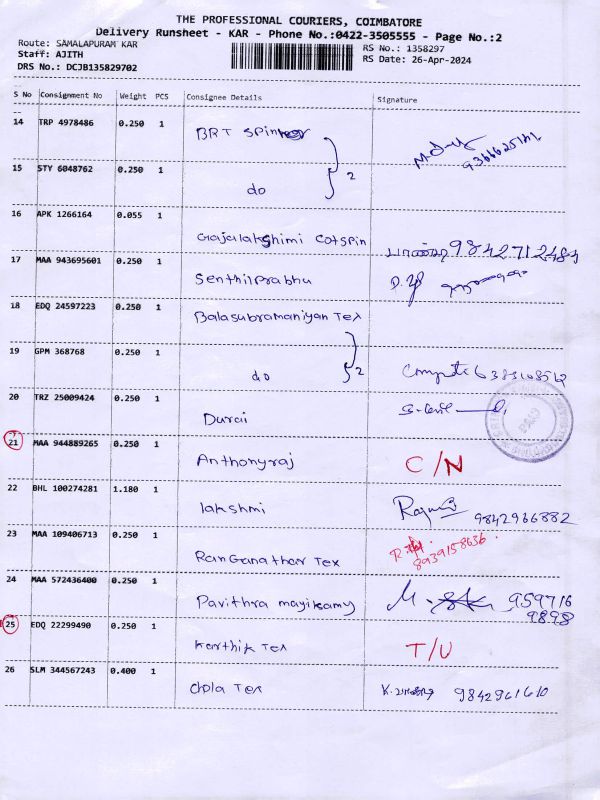 THE PROFESSIONAL COURIERS, COIMBATORE
Delivery Runsheet - KAR - Phone No.:0422-3505555 - Page No.:2
Route: SAMALAPURAM KAR
Staff: AJITH
DRS No.: DCJB135829702
RS No.: 1358297
RS Date: 26-Apr-2024
S No Consignment No Weight PCS Consignee Details Signature
14 TRP 4978486 0.250 1 BRT
15 STY 6048762 0.250 1 do
2
16 APK 1266164 0.055 1 Gajalakshimi Cotspin 9842712484
17 MAA 943695601 0.250 1 Senthilprabhu
18 EDQ 24597223 0.250 1 Balasubramaniyan Tex
19 GPM 368768 0.250 1 do
2
20 TRZ 25009424 0.250 1 Durai
21 MAA 944889265 0.250 1 Anthonyraj C/N
22 BHL 100274281 1.180 1 lakshmi 9842966882
23 MAA 109406713 0.250 1 Ranganathar Tex 8939158636
24 MAA 572436400 0.250 1 Pavithra 959716
9898
25 EDQ 22299490 0.250 1 Karthik Tex T/U
26 SLM 344567243 0.400 1 Chola Tex 9842961610